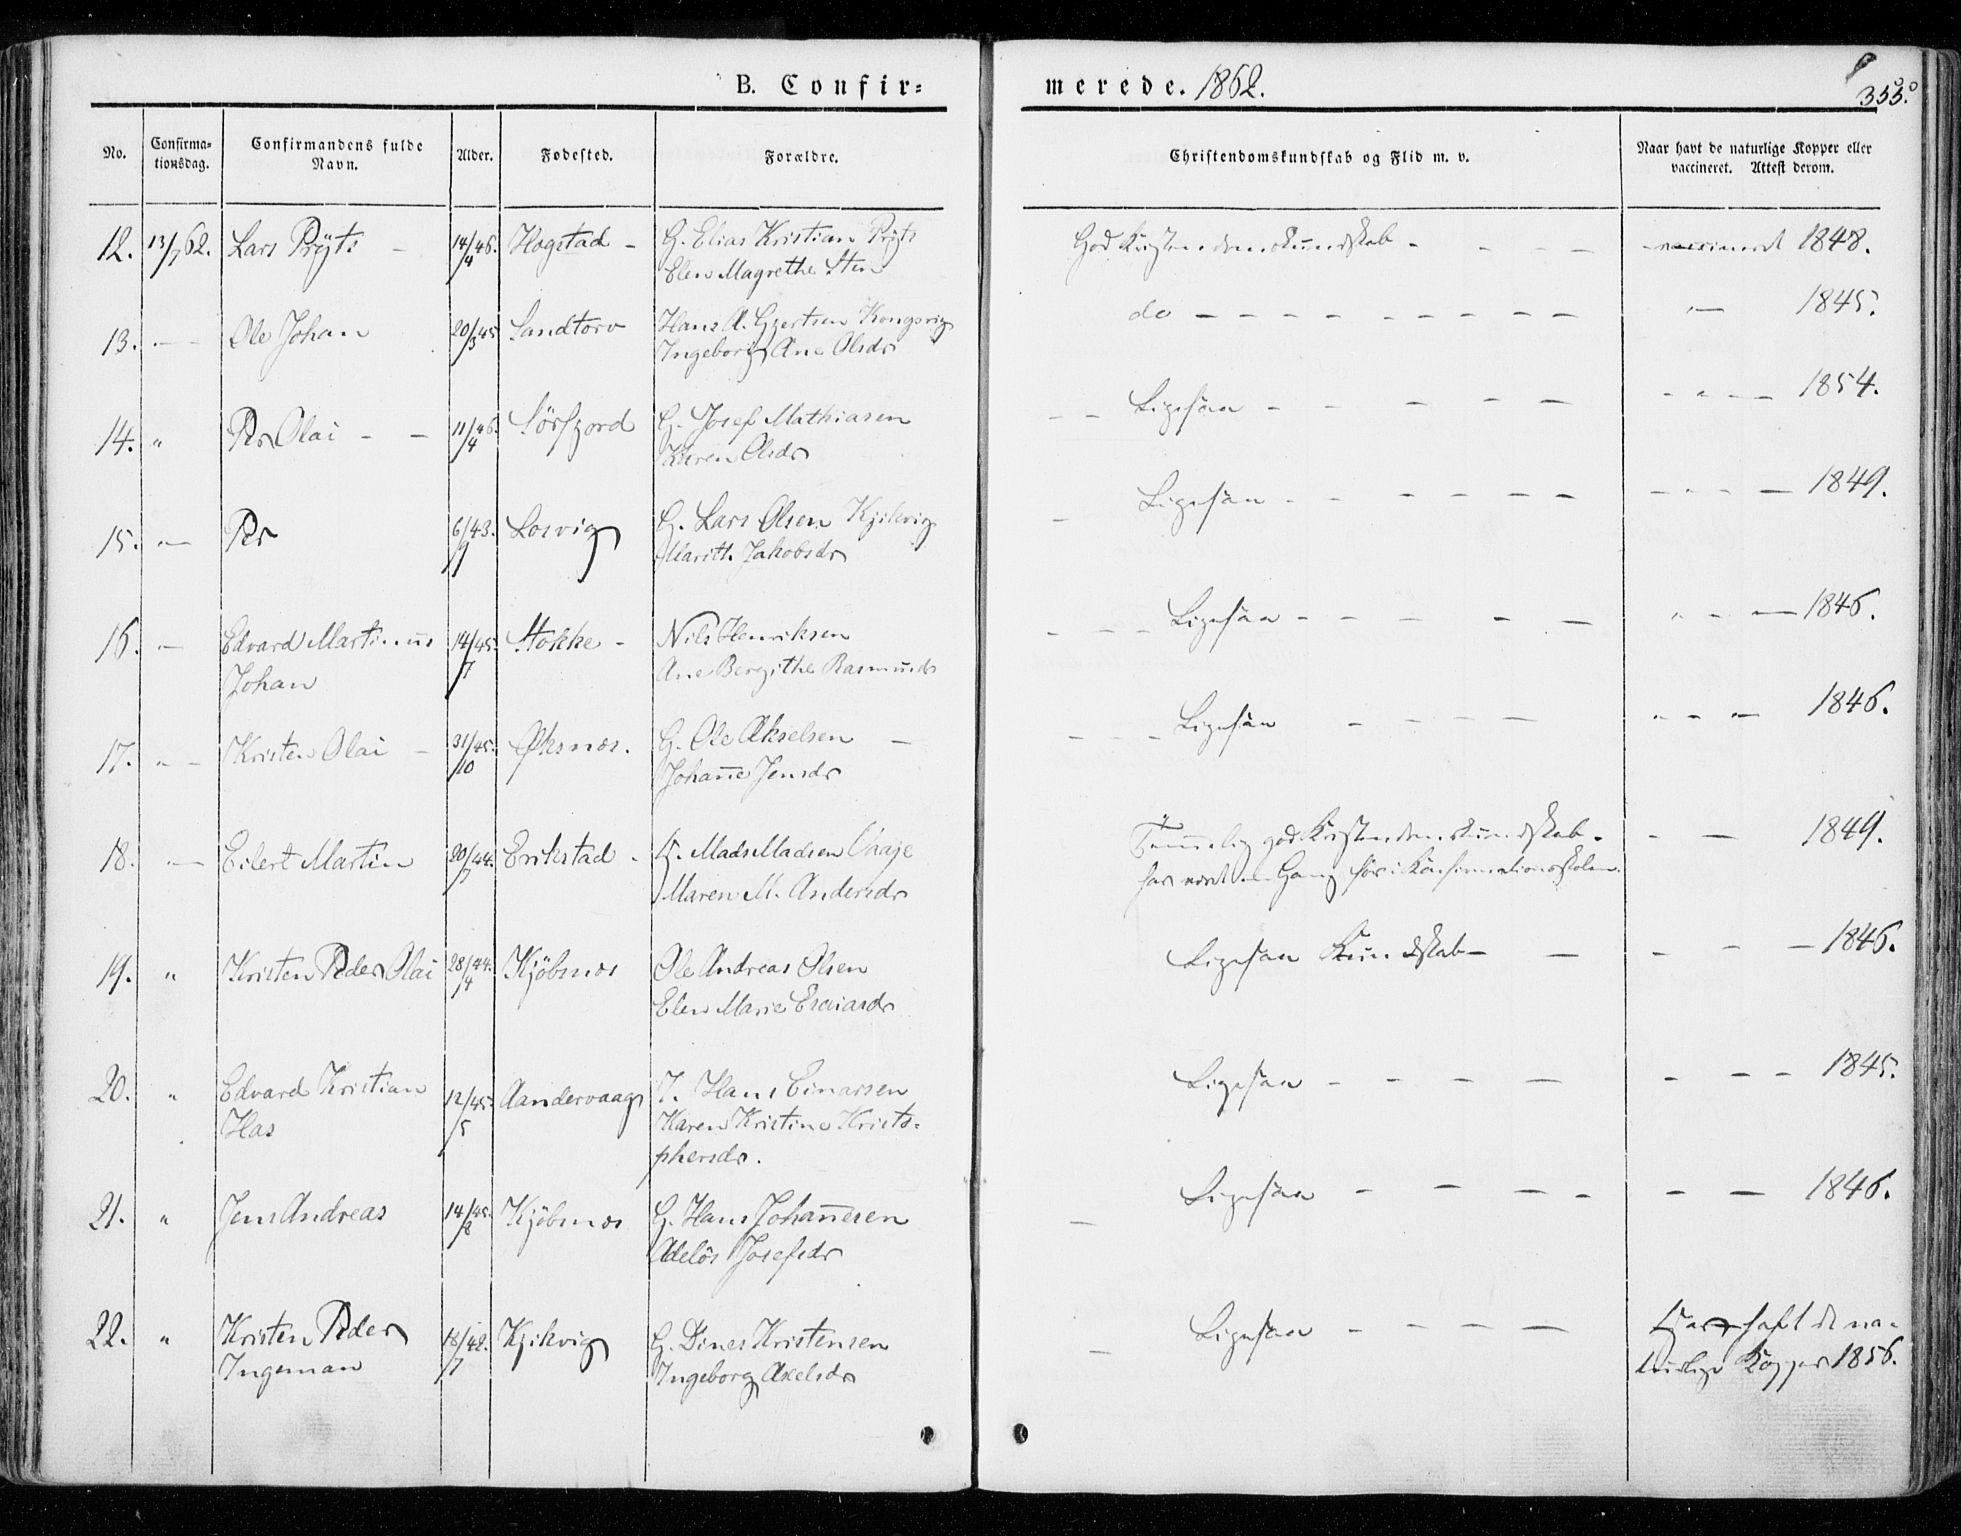 B. Confir=
merede. 1862.
355.
No.
Confirma-
tionsdag.
Confirmandens fulde
Navn.
Alder.
Fodested.
Forældre.
Christendomskundskab og Flid m. v.
Naar havt de naturlige Kopper eller
vaccineret. Attest derom.
12. 13/7 62. Lars Prÿts – 14/4 46. Hogstad – G. Elias Kristian Prÿts
Elen Magrethe Sten
God Kristendomskundskab – – – – – vaccineret 1848.
13. – – Ole Johan 20/3 45 Sandtorv Hans A. Gjertsen Kongsvig
Ingeborg Ane Olsdr
do – – – – – – – – – " – 1845.
14. " Per Olai – – 11/4 46. Sörfjord G. Josef Mathiasen
Karen Olsdr
– – Ligesaa – – – – – – " – – 1854.
15. " – Per 6/9 43. Losvig G. Lars Olsen Kjikvig
Maritt. Jakobsdr
– Ligesaa – – – – – – – " – – 1849.
16. " – Edvard Martinus
Johan
14/7 45. Stokke – Nils Henriksen
Ane Bergithe Rasmusdr
– – – Ligesaa – – – – – " – – 1846.
17. " – Kristen Olai – 31/10 45. Øksnæs. G. Ole Akselsen –
Johanne Jensdr
– – – Ligesaa – – – – " – " – 1846.
18. – Eilert Martin 20/7 44. Erikstad – Mads Madsen Vaaje
Maren M. Andersdr
Temmelig god Kristendomskundskab –
har været en Gang før i Konfirmationsskolen.
– – 1849.
19. " Kristen Peder Olai 28/4 44. Kjöbsnæs Ole Andreas Olsen
Elen Marie Esaiasdr
Ligesaa Kundskab – – – – – 1846.
20. " Edvard Kristian
Has
12/5 45. Aandervaag I. Hans Einarsen
Karen Kristine Kristo-
phersdr.
Ligesaa – – – – – – – 1845.
21. " Jens Andreas 14/8 45. Kjöbsnæs G. Hans Johannesen
Adelös Josefsdr
– Ligesaa – – – – – – 1846.
22. " Kristen Peder
Ingeman
18/7 42. Kjikvig G. Dines Kristensen
Ingeborg Axelsdr
– Ligesaa – – – – Har haft de na-
turlige Kopper 1856.